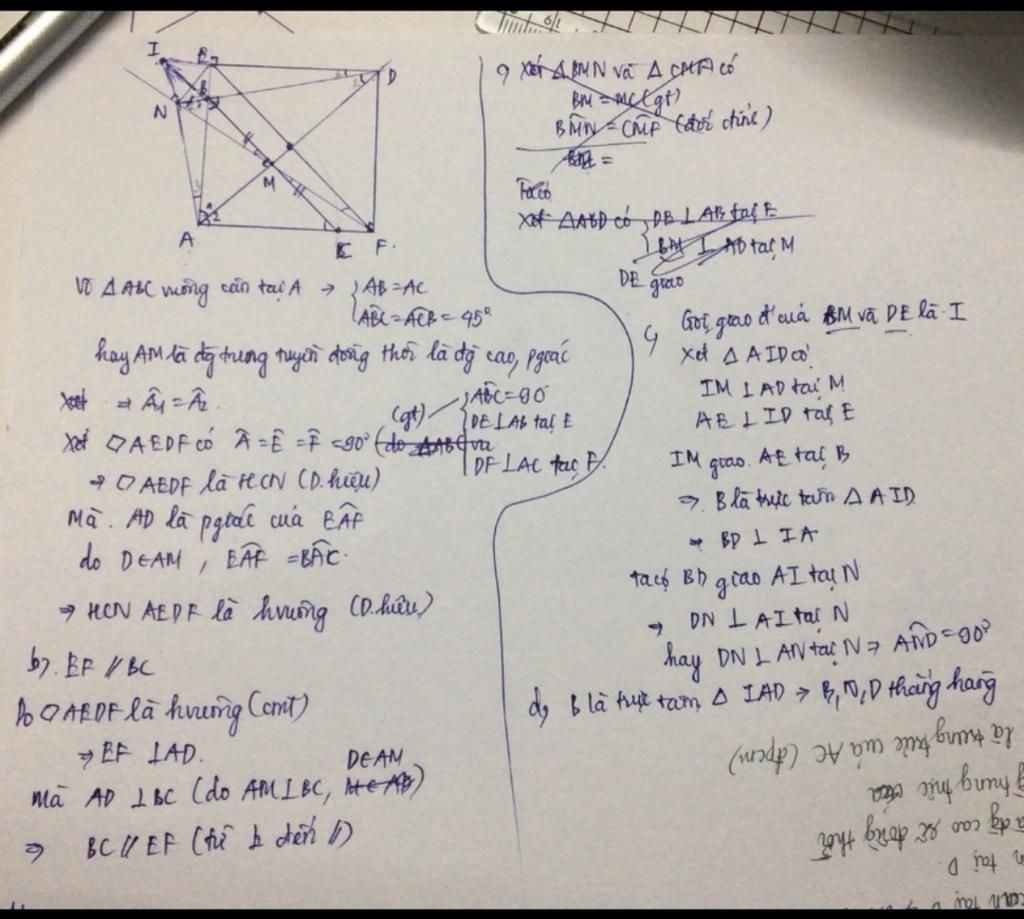 I
E
D
N
B
M
A
C
F
Vì ΔABC vuông cân tại A → { AB = AC
ABC = ACB = 45°
hay AM là đg trung tuyến đồng thời là đg cao, pgiác
⇒ Â1 = Â2
Xét ◇AEDF có Â = Ê = F̂ = 90° (gt)
ABC = 90°
DE ⊥ AB tại E
và
DF ⊥ AC tại F.
→ ◇AEDF là HCN (D.hiệu)
Mà. AD là pgiác của EAF
do D∈AM, EAF = BAC.
→ HCN AEDF là hvuông (D.hiệu)
b). EF // BC
Do ◇AEDF là hvuông (cmt)
→ EF ⊥ AD.
D∈AM
mà AD ⊥ BC (do AM ⊥ BC,
⇒ BC // EF (từ ⊥ đến //)
c) Xét ΔBMN và ΔCMF có
BM = MC (gt)
BMN = CMF (đối đỉnh)
Ta có
Xét ΔABD có { DE ⊥ AB tại E
BM ⊥ AD tại M
DE giao
c, Gọi giao đ' của BM và DE là I
Xét ΔAID có
IM ⊥ AD tại M
AE ⊥ ID tại E
IM giao. AE tại B
⇒ B là trực tâm ΔAID
→ BD ⊥ IA
ta có BD giao AI tại N
→ DN ⊥ AI tại N
hay DN ⊥ AN tại N ⇒ AND = 90°
d, B là trực tâm Δ IAD → B, N, D thẳng hàng
là trung trực của AC (đpcm)
trung trực của
đg cao sẽ đồng thời
tại D.
cân tại D